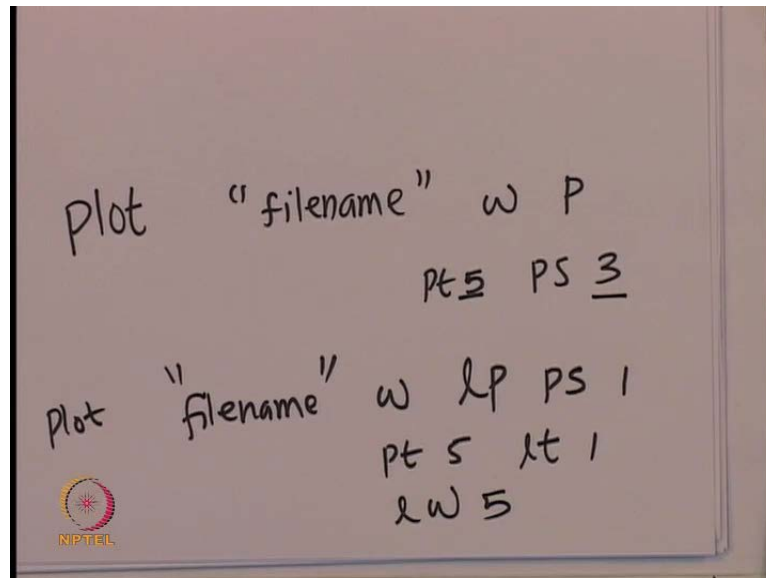 plot "filename" w p
pt 5 ps 3
plot "filename" w lp ps 1
pt 5 lt 1
lw 5
NPTEL